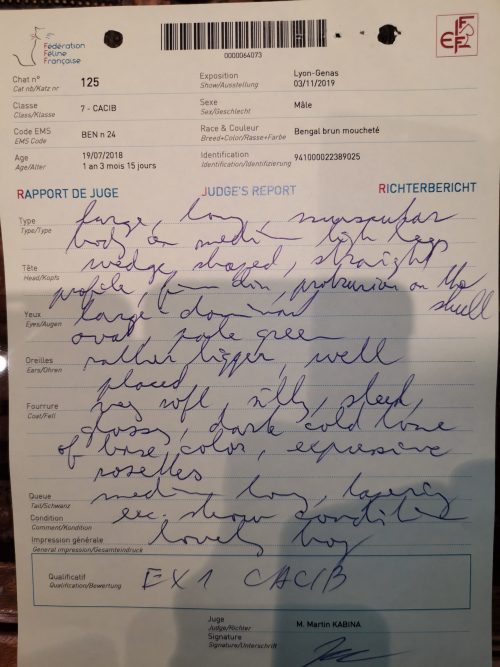 Fédération
Féline
Française
0000064073
FIFe
Chat n°
Cat nb/Katz nr
125
Exposition
Show/Ausstellung
Lyon-Genas
03/11/2019
Classe
Class/Klasse
7 - CACIB
Sexe
Sex/Geschlecht
Mâle
Code EMS
EMS Code
BEN n 24
Race & Couleur
Breed+Color/Rasse+Farbe
Bengal brun moucheté
Age
Age/Alter
19/07/2018
1 an 3 mois 15 jours
Identification
Identification/Identifizierung
941000022389025
RAPPORT DE JUGE
JUDGE'S REPORT
RICHTERBERICHT
Type
Type/Type
large, long, muscular
body on medium high legs
Tête
Head/Kopfs
wedge shaped, straight
profile, firm chin, protrusion on the
skull
Yeux
Eyes/Augen
large
oval, pale green
Oreilles
Ears/Ohren
rather bigger, well
placed
Fourrure
Coat/Fell
very soft, silky, sleek,
glossy, dark cold tone
of base color, expressive
rosettes
Queue
Tail/Schwanz
medium long, tapering
Condition
Comment/Kondition
exc. show condition
Impression générale
General impression/Gesamteindruck
lovely boy
Qualificatif
Qualification/Bewertung
EX1 CACIB
Juge
Judge/Richter
M. Martin KABINA
Signature
Signature/Unterschrift